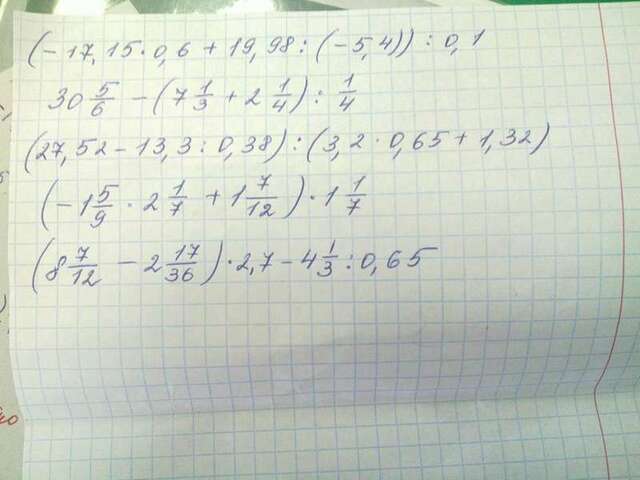 (-17,15·0,6+19,98:(-5,4)):0,1
30 5/6 - (7 1/3 + 2 1/4) : 1/4
(27,52-13,3:0,38):(3,2·0,65+1,32)
(-1 5/9 · 2 1/7 + 1 7/12) · 1 1/7
(8 7/12 - 2 17/36) · 2,7 - 4 1/3 : 0,65